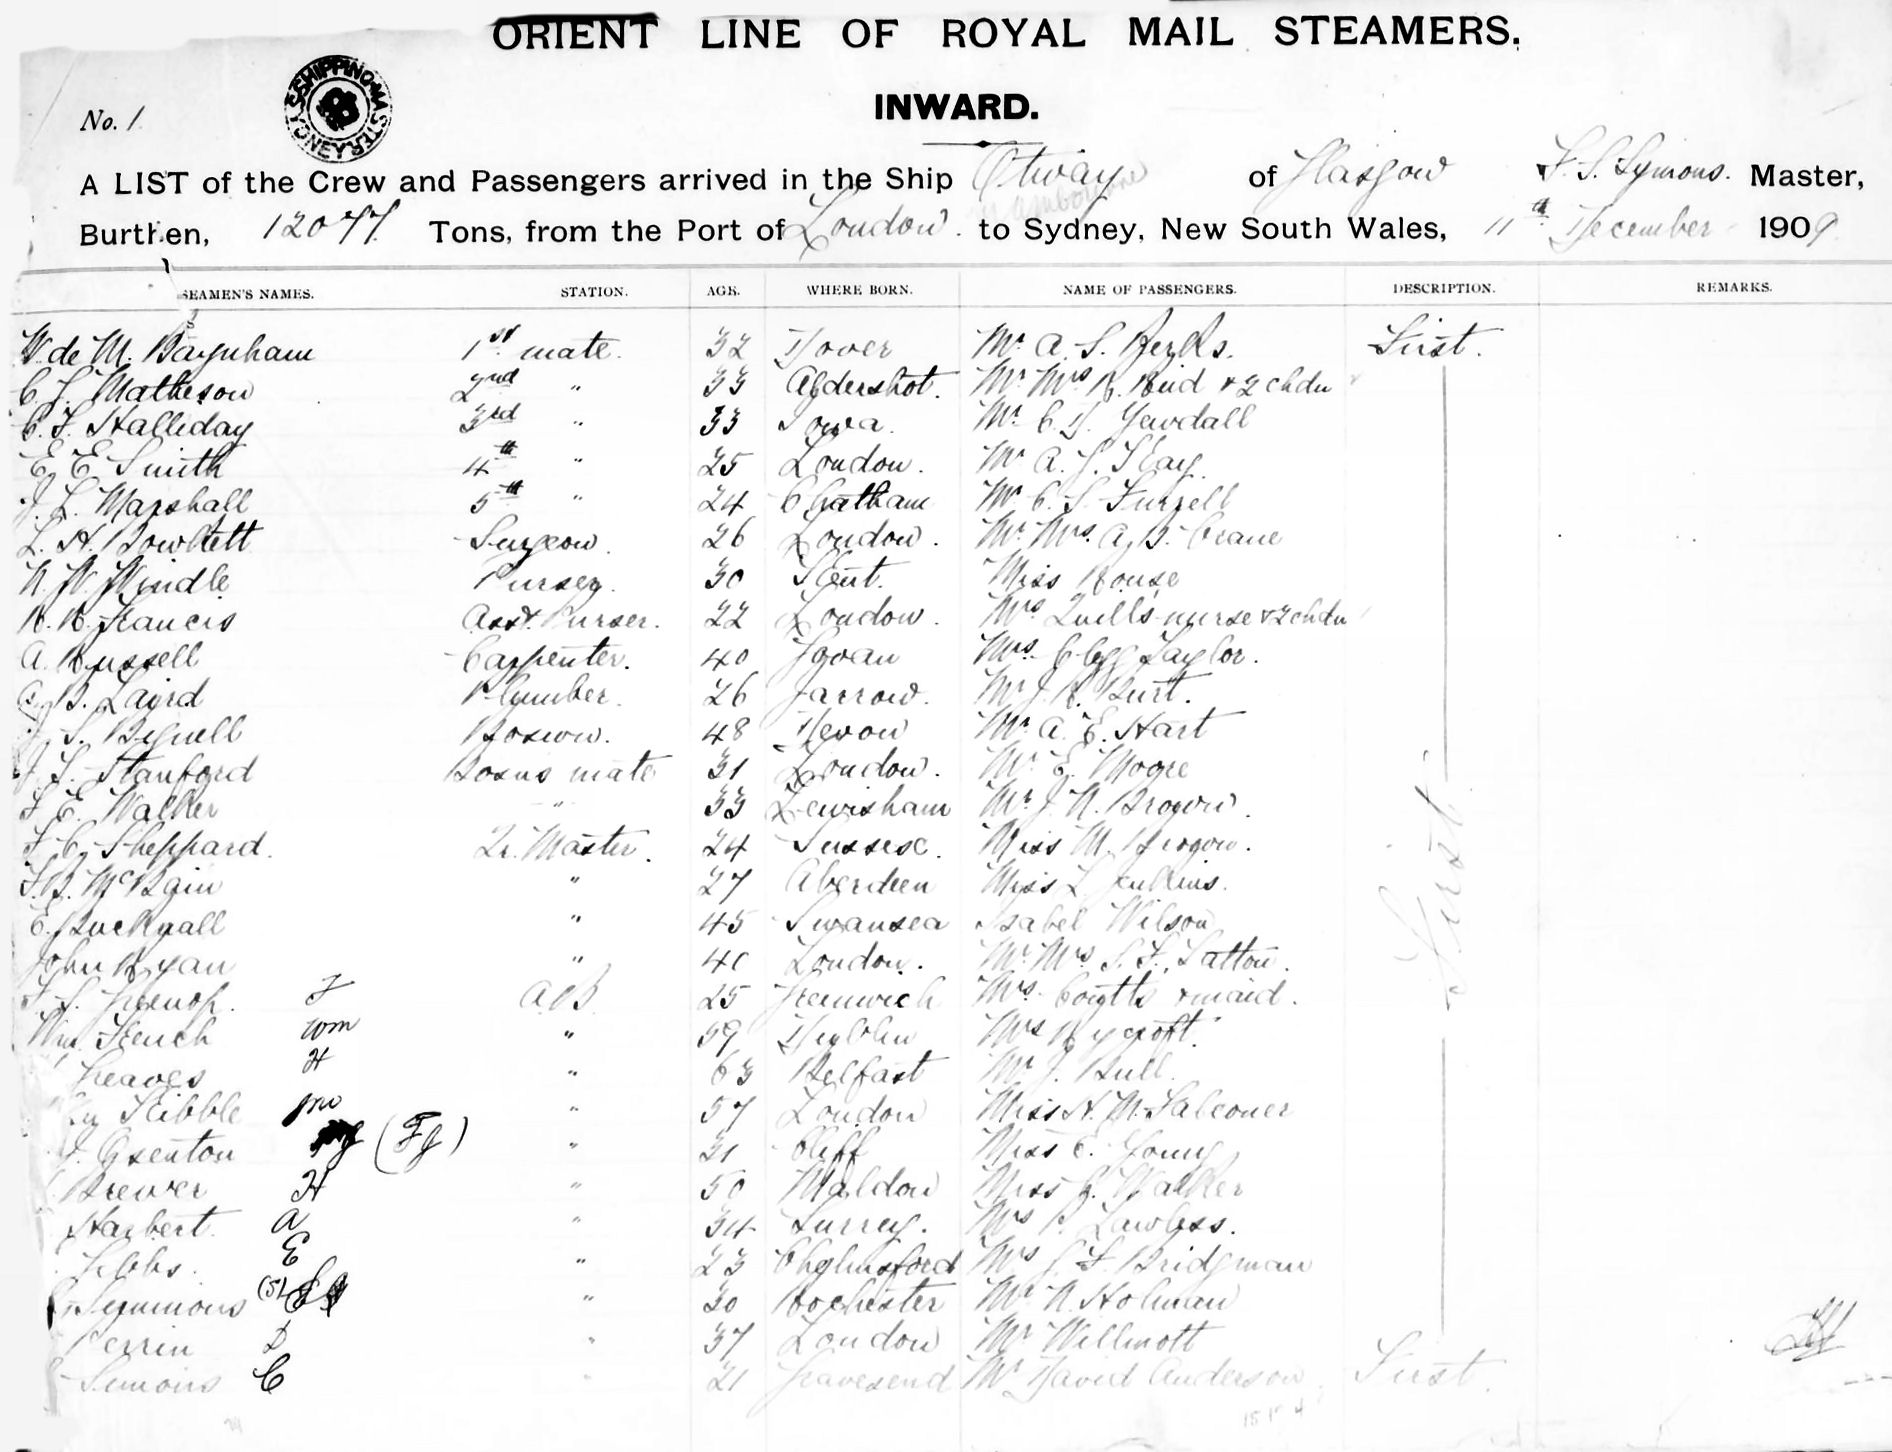 ORIENT LINE OF ROYAL MAIL STEAMERS.
INWARD.
No. 1
SHIPPING MASTER SYDNEY
A LIST of the Crew and Passengers arrived in the Ship Otway of Glasgow F. S. Symons. Master,
Burthen, 12077. Tons, from the Port of London. to Sydney, New South Wales, 11th December 1909
SEAMEN'S NAMES. STATION. AGE. WHERE BORN. NAME OF PASSENGERS. DESCRIPTION. REMARKS.
W. de M. Baynham 1st mate. 32 Dover Mr A. S. First.
C. G. Matheson 2nd " 33 Aldershot. Mr Mrs R. Reid & 2 chdn
C. F. Halliday 3rd " 33 Iowa. Mr C. D. Yewdall
E. E. Smith 4th " 25 London. Mr A. G.
J. L. Marshall 5th " 24 Chatham Mr C. S. Furzell
L. H. Bowkett Surgeon. 26 London. Mr Mrs A. B. Crane
N. W. Windle Purser. 30 Kent. Miss Rouse
R. R. Francis Asst. Purser. 22 London. Mrs Quills nurse & 2 chdn
A. Russell Carpenter. 40 Govan Mrs Clegg Taylor.
B. Laird Plumber. 26 Jarrow. Mr J. R. Burt.
S. Bignell Boswn. 48 Devon Mr A. E. Hart
J. S. Stanford Bosns mate 31 London. Mr E. Moore
F. E. Walker " 33 Lewisham Mr J. N. Brown.
F. C. Sheppard. Qr. Master. 24 Sussex. Miss M. Brown.
McBain " 27 Aberdeen Miss L. Jenkins.
E. Bucknall " 45 Swansea Isabel Wilson
John Ryan " 40 London. Mr Mrs S. F. Sutton.
F. S. Greenop. F A B 25 Greenwich Mrs Coutts & maid.
Wm. French Wm " 59 Dublin Mrs Rycroft.
Greaves H " 63 Belfast Mr J. Bull.
Kibble " 57 London Miss H. M. Falconer
J. Axenton (Fg) " 31 Cliff Miss E. Young
Brewer H " 50 Maldon Miss G. Walker
Harbert A " 34 Surrey. Mrs P. Lawless.
Gibbs. E " 23 Chelmsford Mrs G. F. Bridgman
Symmons (5) " 30 Rochester Mr N. Holman
Perrin D " 37 London Mr Willmott
Simons C " 21 Gravesend Mr David Anderson First.
First